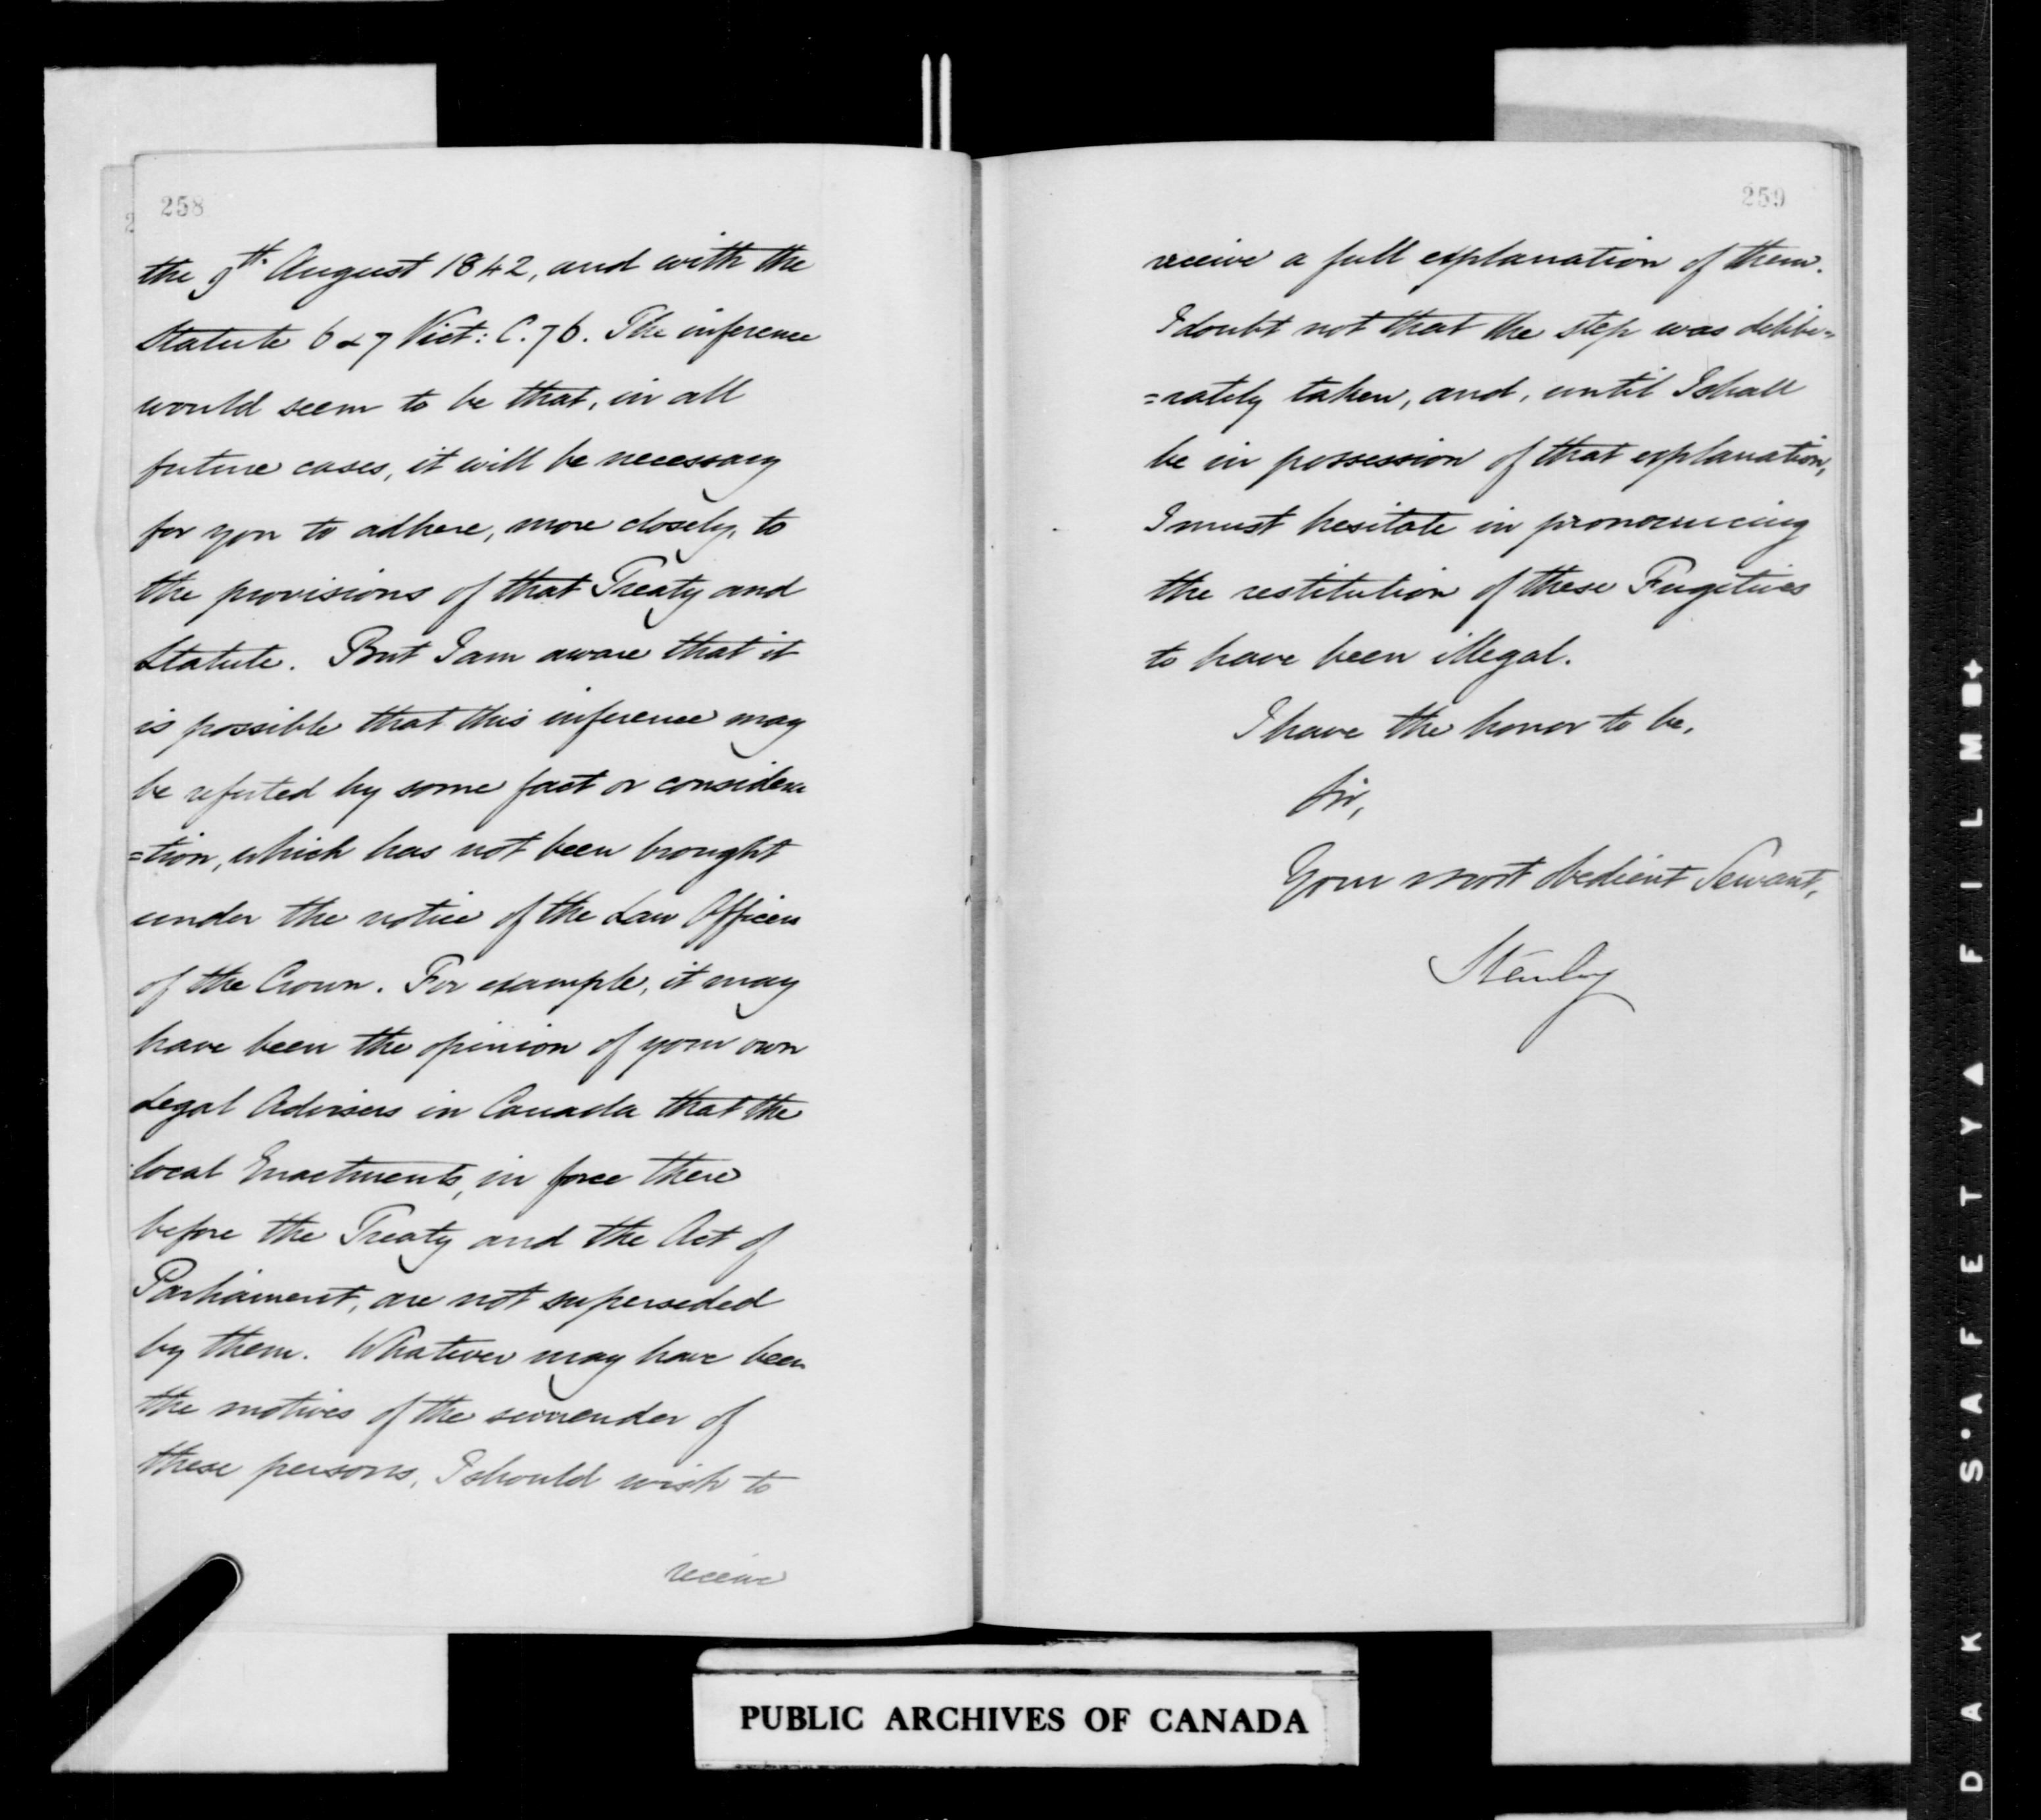 258
the 9th. August 1842, and with the
Statute 6 & 7 Vict: C. 76. The inference
would seem to be that, in all
future cases, it will be necessary
for you to adhere, more closely, to
the provisions of that Treaty and
Statute. But I am aware that it
is possible that this inference may
be refuted by some fact or considera
=tion, which has not been brought
under the notice of the Law Officers
of the Crown. For example, it may
have been the opinion of your own
Legal Advisers in Canada that the
local Enactments, in force there
before the Treaty and the Act of
Parliament, are not superseded
by them. Whatever may have been
the motives of the surrender of
these persons, I should wish to
receive
259
receive a full explanation of them.
I doubt not that the step was delibe=
=rately taken, and, until I shall
be in possession of that explanation,
I must hesitate in pronouncing
the restitution of these Fugitives
to have been illegal.
I have the honor to be,
Sir,
Your most obedient Servant,
Stanley
PUBLIC ARCHIVES OF CANADA
D A K S'A F E T Y A F I L M